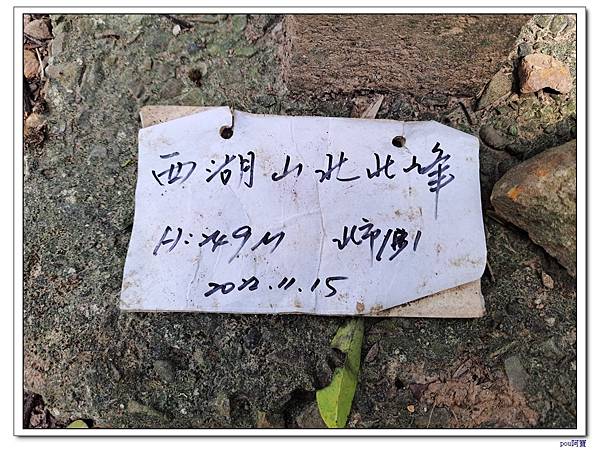 西湖山北北峰
H:249M
2022.11.15
pou阿寶